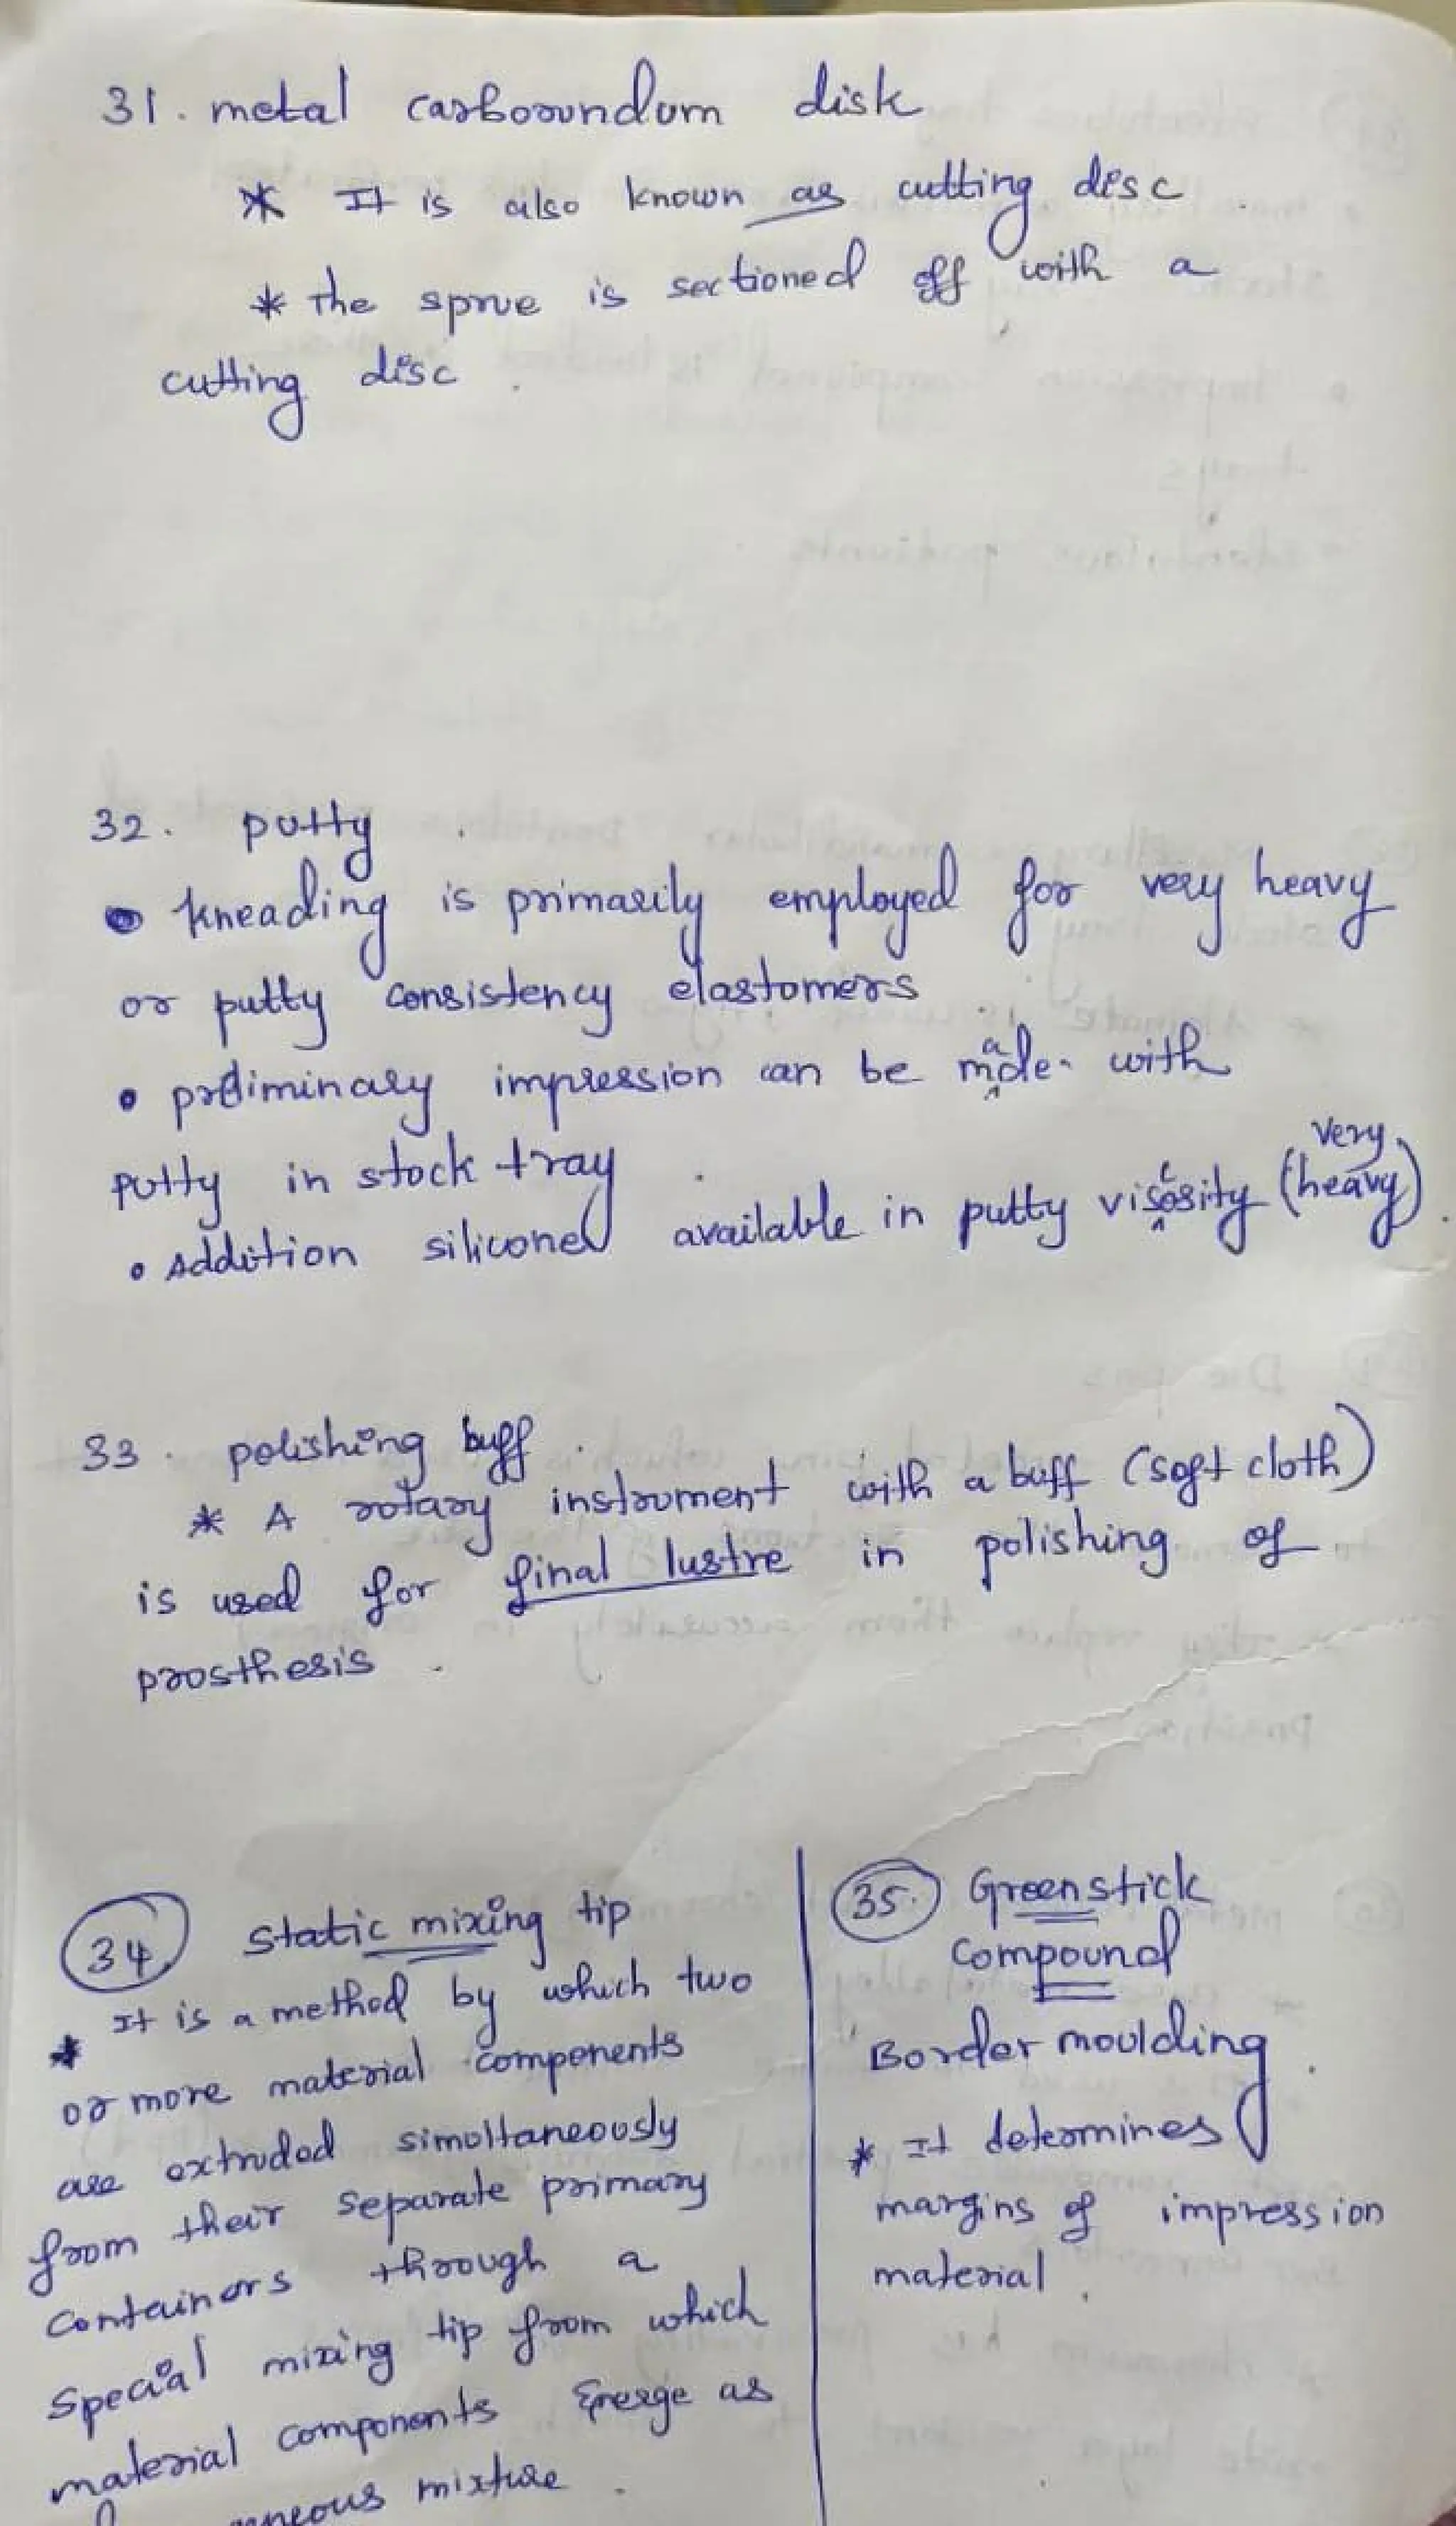 31. metal carborundum disk
* It is also known as cutting disc
* The sprue is sectioned off with a
cutting disc.
32. putty
• kneading is primarily employed for very heavy
or putty consistency elastomers
• preliminary impression can be made with
putty in stock tray
• Addition silicone available in putty viscosity (very heavy).
33. polishing buff
* A rotary instrument with a buff (soft cloth)
is used for final lustre in polishing of
prosthesis.
34. static mixing tip
* It is a method by which two
or more material components
are extruded simultaneously
from their separate primary
containers through a
special mixing tip from which
material components Emerge as
mixture.
35. Greenstick
compound
Border moulding.
* It determines
margins of impression
material.